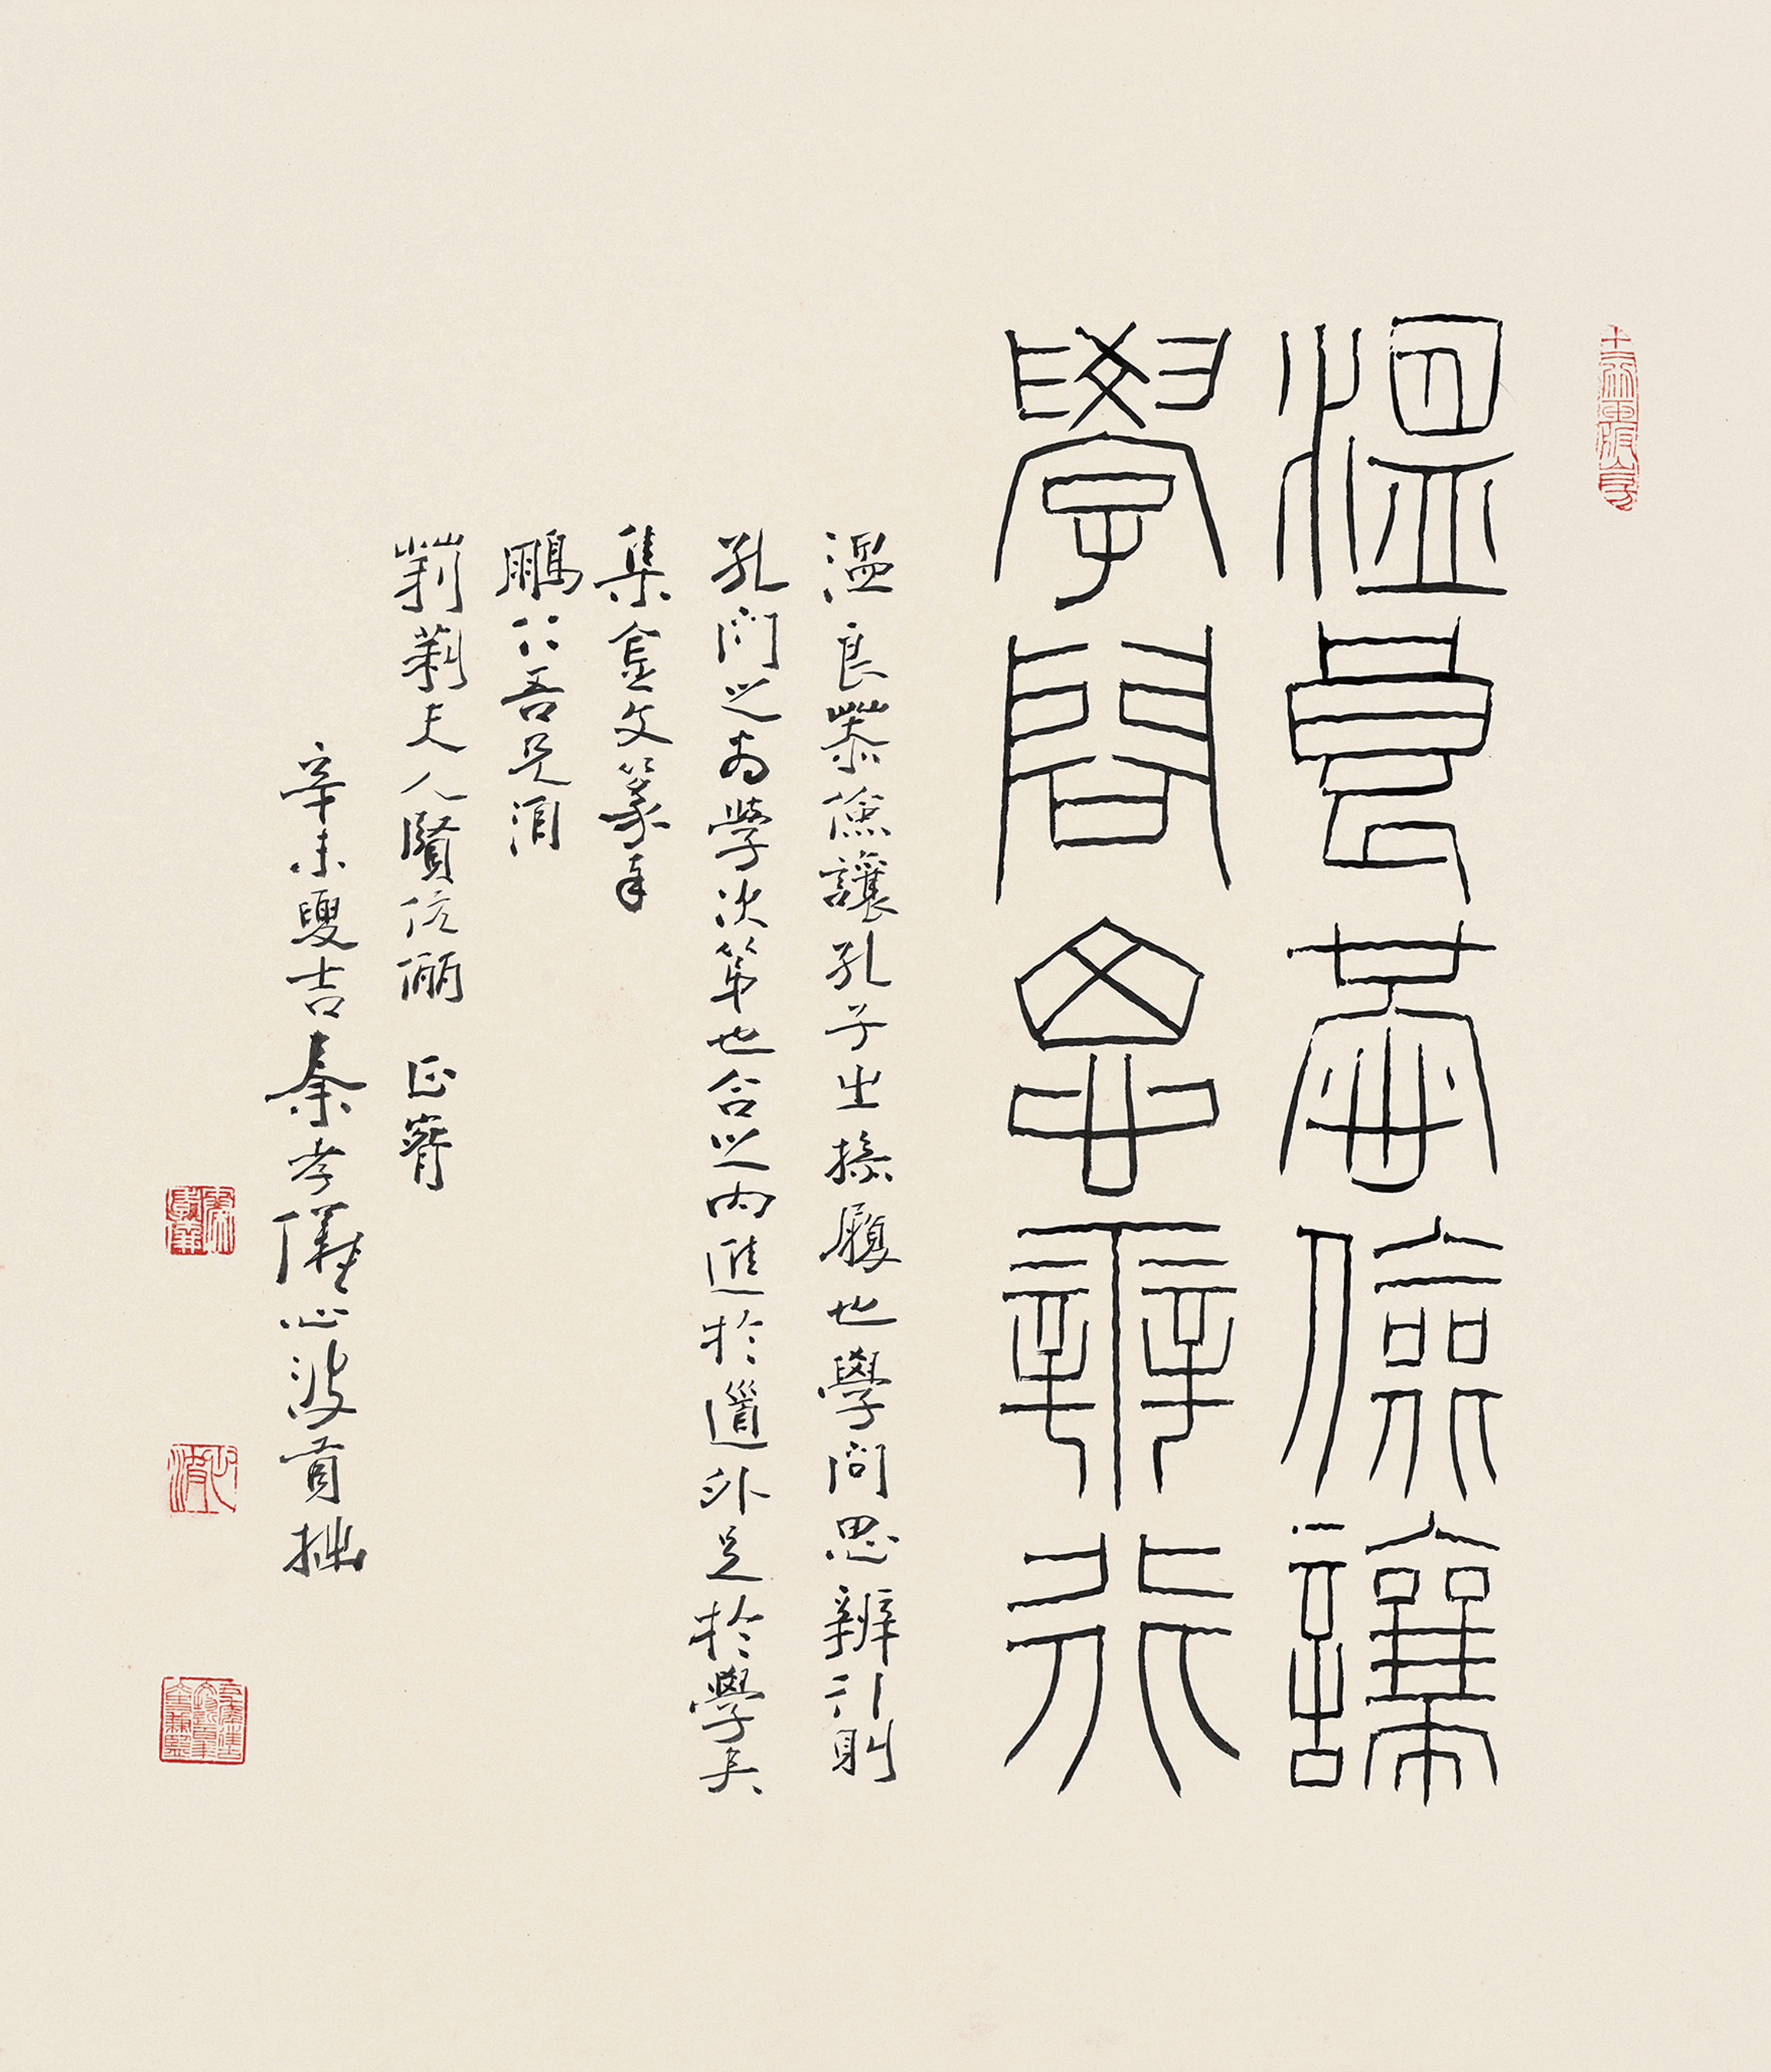 溫良恭儉讓
學問思辨行
溫良恭儉讓孔子生操履也學問思辨行則
孔門之為學次第也合之內進於道外足於學矣
集金文篆奉
鵬仁吾兄
莉莉夫人賢伉儷 正
辛未夏吉秦孝儀心波貢拙